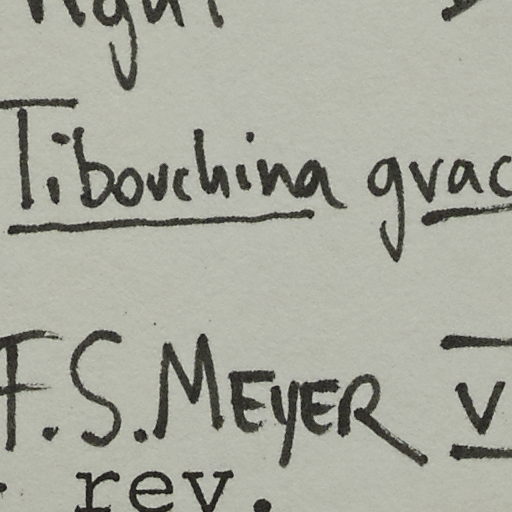 Tibouchina grac
F.S. MEYER V
rev.